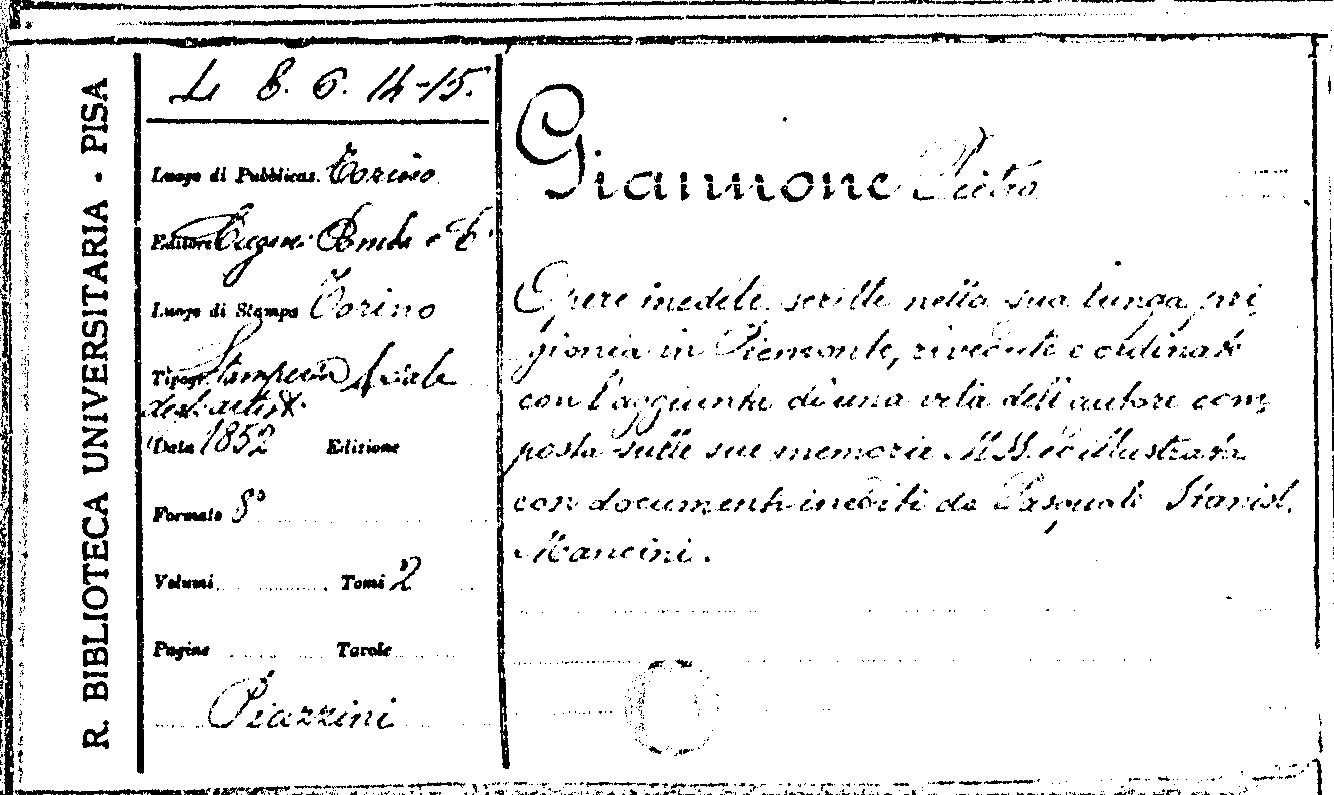 R. BIBLIOTECA UNIVERSITARIA - PISA
L 8. 6. 14-15.
Luogo di Pubblicaz. Torino
Editore Eugenio Pomba e C.
Luogo di Stampa Torino
Tipogr. Stamperia Sociale
degli artisti
Data 1852 Edizione
Formato 8°
Volumi Tomi 2
Pagine Tavole
Piazzini
Giannone Pietro
Opere inedite scritte nella sua lunga pri
gionia in Piemonte, rivedute e ordinate
con l'aggiunta di una vita dell'autore com
posta sulle sue memorie MSS. ed illustrata
con documenti inediti da Pasquale Stanisl.
Mancini.